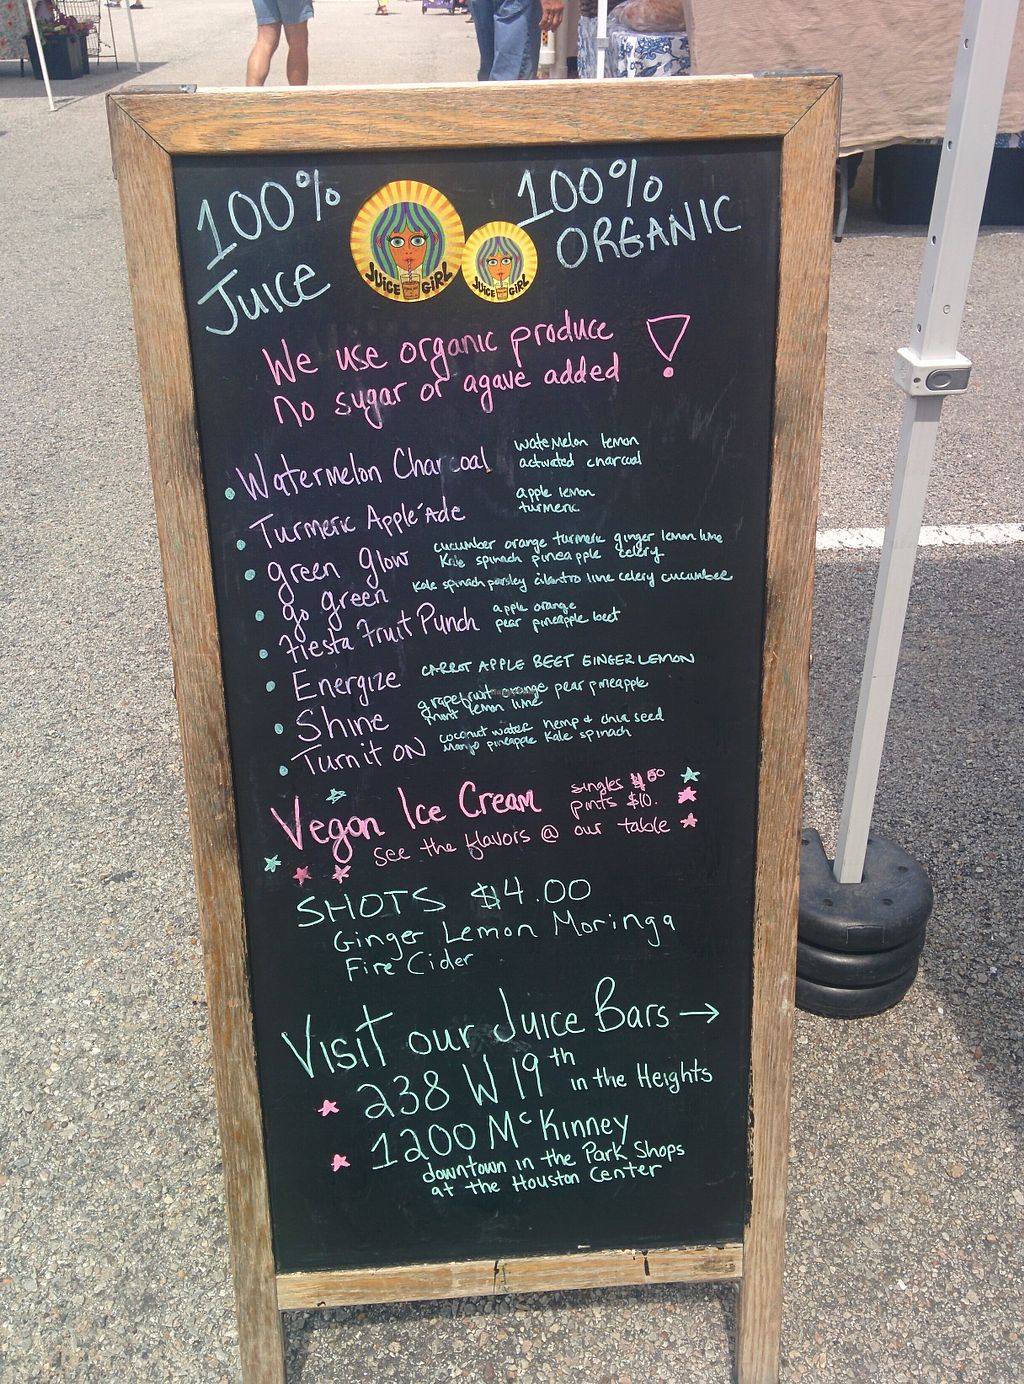 100% JUICE
100% ORGANIC
JUICE GIRL
JUICE GIRL
We use organic produce
no sugar or agave added !
• Watermelon Charcoal watemelon lemon
activated charcoal
• Turmeric Apple'Ade apple lemon
turmeric
• green glow cucumber orange turmeric ginger lemon lime
Kale spinach pineapple celery
• go green Kale spinach parsley cilantro lime celery cucumber
• Fiesta Fruit Punch apple orange
pear pineapple beet
• Energize CARROT APPLE BEET GINGER LEMON
• Shine grapefruit orange pear pineapple
mint lemon lime
• Turn it ON coconut water hemp & chia seed
Mango pineapple Kale spinach
Vegan Ice Cream singles
pints $10.
see the flavors @ our table
SHOTS $4.00
Ginger Lemon Moringa
Fire Cider
Visit our Juice Bars →
238 W 19th in the Heights
1200 McKinney
downtown in the Park Shops
at the Houston Center